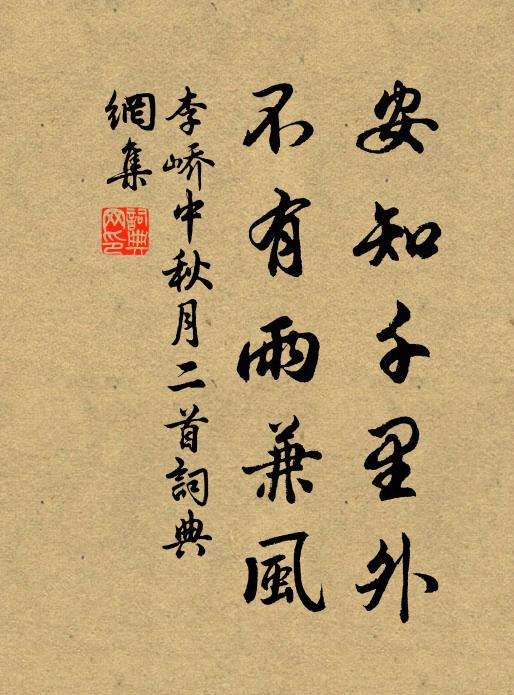 安知千里外
不有雨兼風
李嶠中秋月二首詞典
網集
詞典
网印